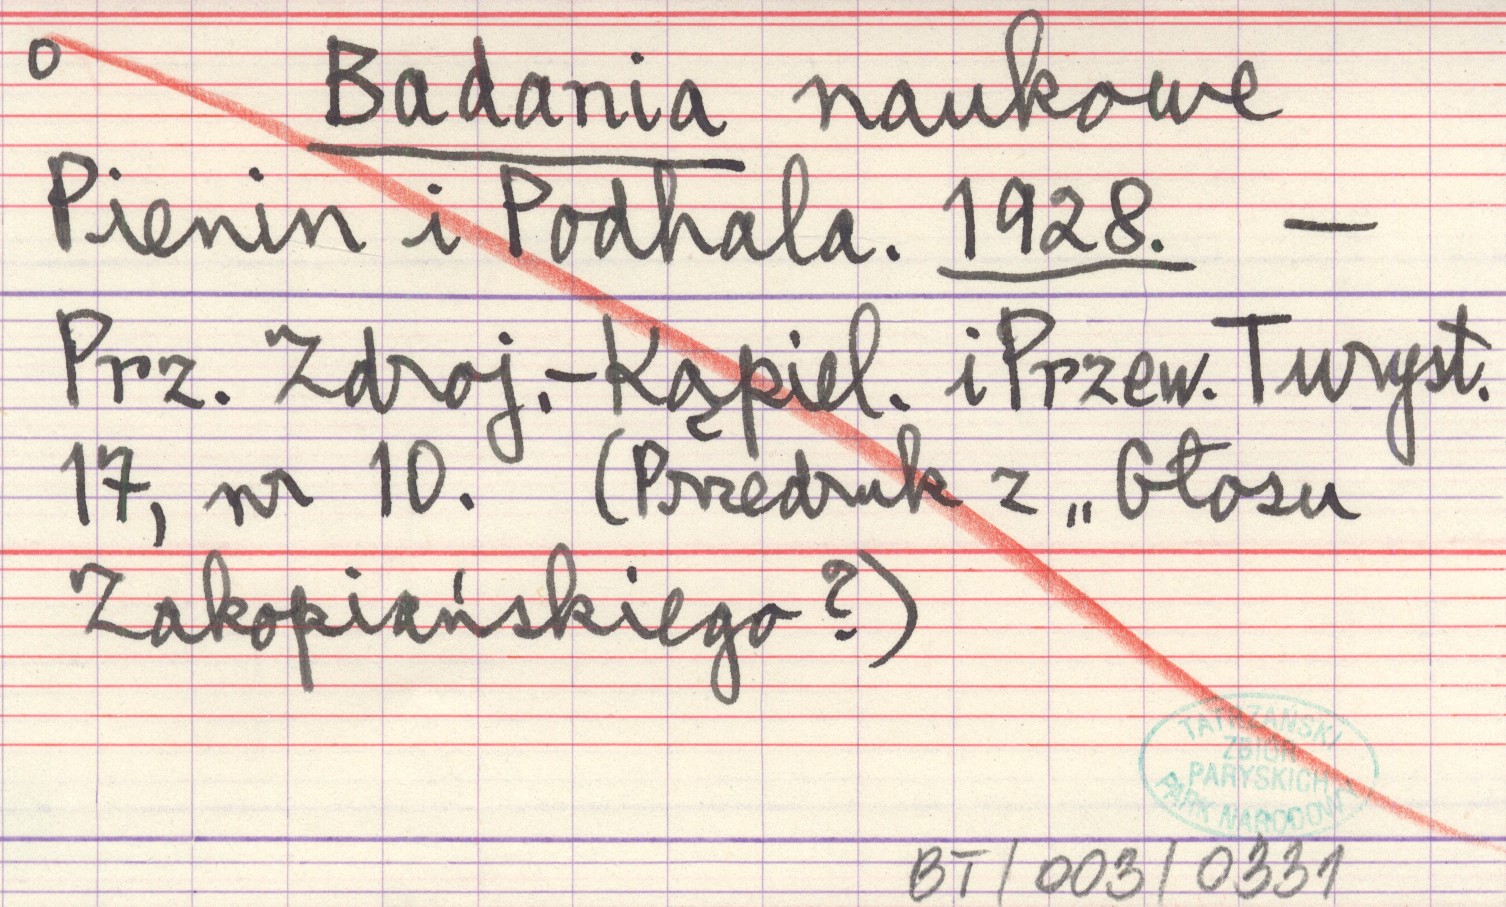 o
Badania naukowe
Pienin i Podhala. 1928. —
Prz. Zdroj.-Kąpiel. i Przew. Turyst.
17, nr 10. (Przedruk z „Głosu
Zakopiańskiego?)
TATRZAŃSKI
ZBIÓR
PARYSKICH
PARK NARODOWY
BT/003/0331